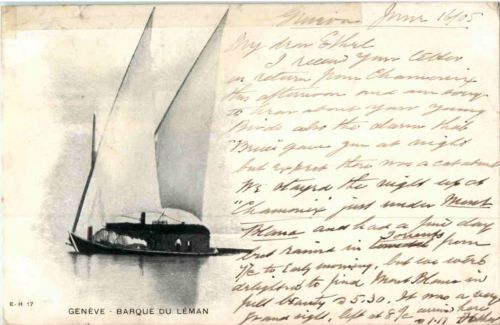 Geneva June 16/05
My dear Ethel
I receive your letter
on return from Chamonix
this afternoon and am sorry
to hear about your young
Birds also the alarm that
"Bruce" gave you at night
but expect there was a cat about
We stayed the night up at
"Chamonix" just under Mont
Blanc and had a fine day
but rained in torrents from
to early morning, but we were
delighted to find Mont Blanc in
full beauty @ 5.30. It was a very
grand sight, left at 8
E-H 17
GENÈVE - BARQUE DU LÉMAN